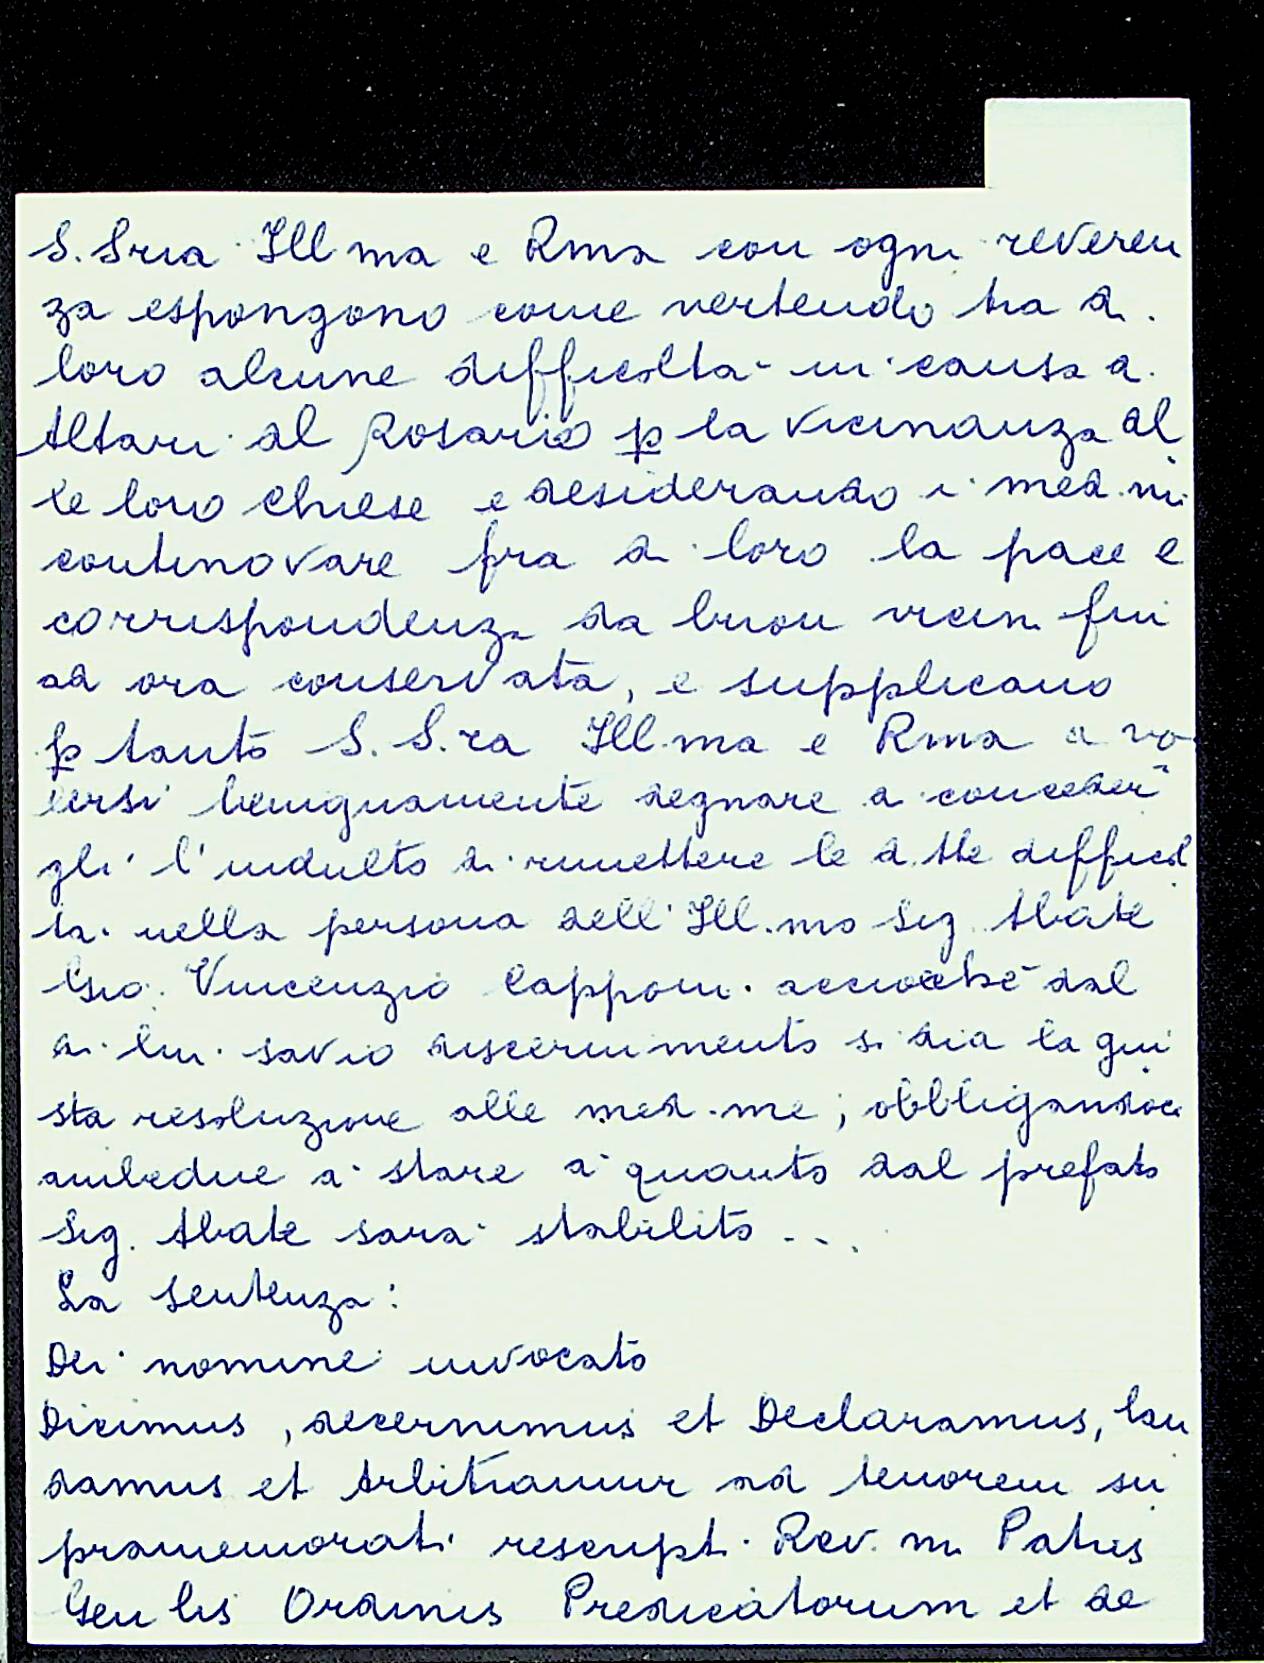 S. Sria Ill ma e Rma con ogni reveren
za espongono come vertendo tra di
loro alcune difficolta in causa di
Altari del Rosario p la vicinanza del
le loro Chiese e desiderando i med.mi
continovare fra di loro la pace e
corrispondenza da buon vicin fin
ad ora conservata, e supplicano
p tanto S. S.ra Ill.ma e Rma a vo
lersi benignamente degnare a conceder
gli l'indulto di rimettere le d.tte difficol
tà nella persona dell'Ill.mo Sig. Abate
Gio. Vincenzio Capponi acciocchè dal
di lui savio discernimento si dia la giu
sta resoluzione alle med.me ; obbligandoci
ambedue a stare a quanto dal prefato
Sig. Abate sarà stabilito ...
La sentenza :
Dei nomine invocato
Dicimus , decernimus et Declaramus, lau
damus et Arbitramur ad tenorem su
pramemorati rescripti Rev. mi Patris
Gen lis Ordinis Predicatorum et de